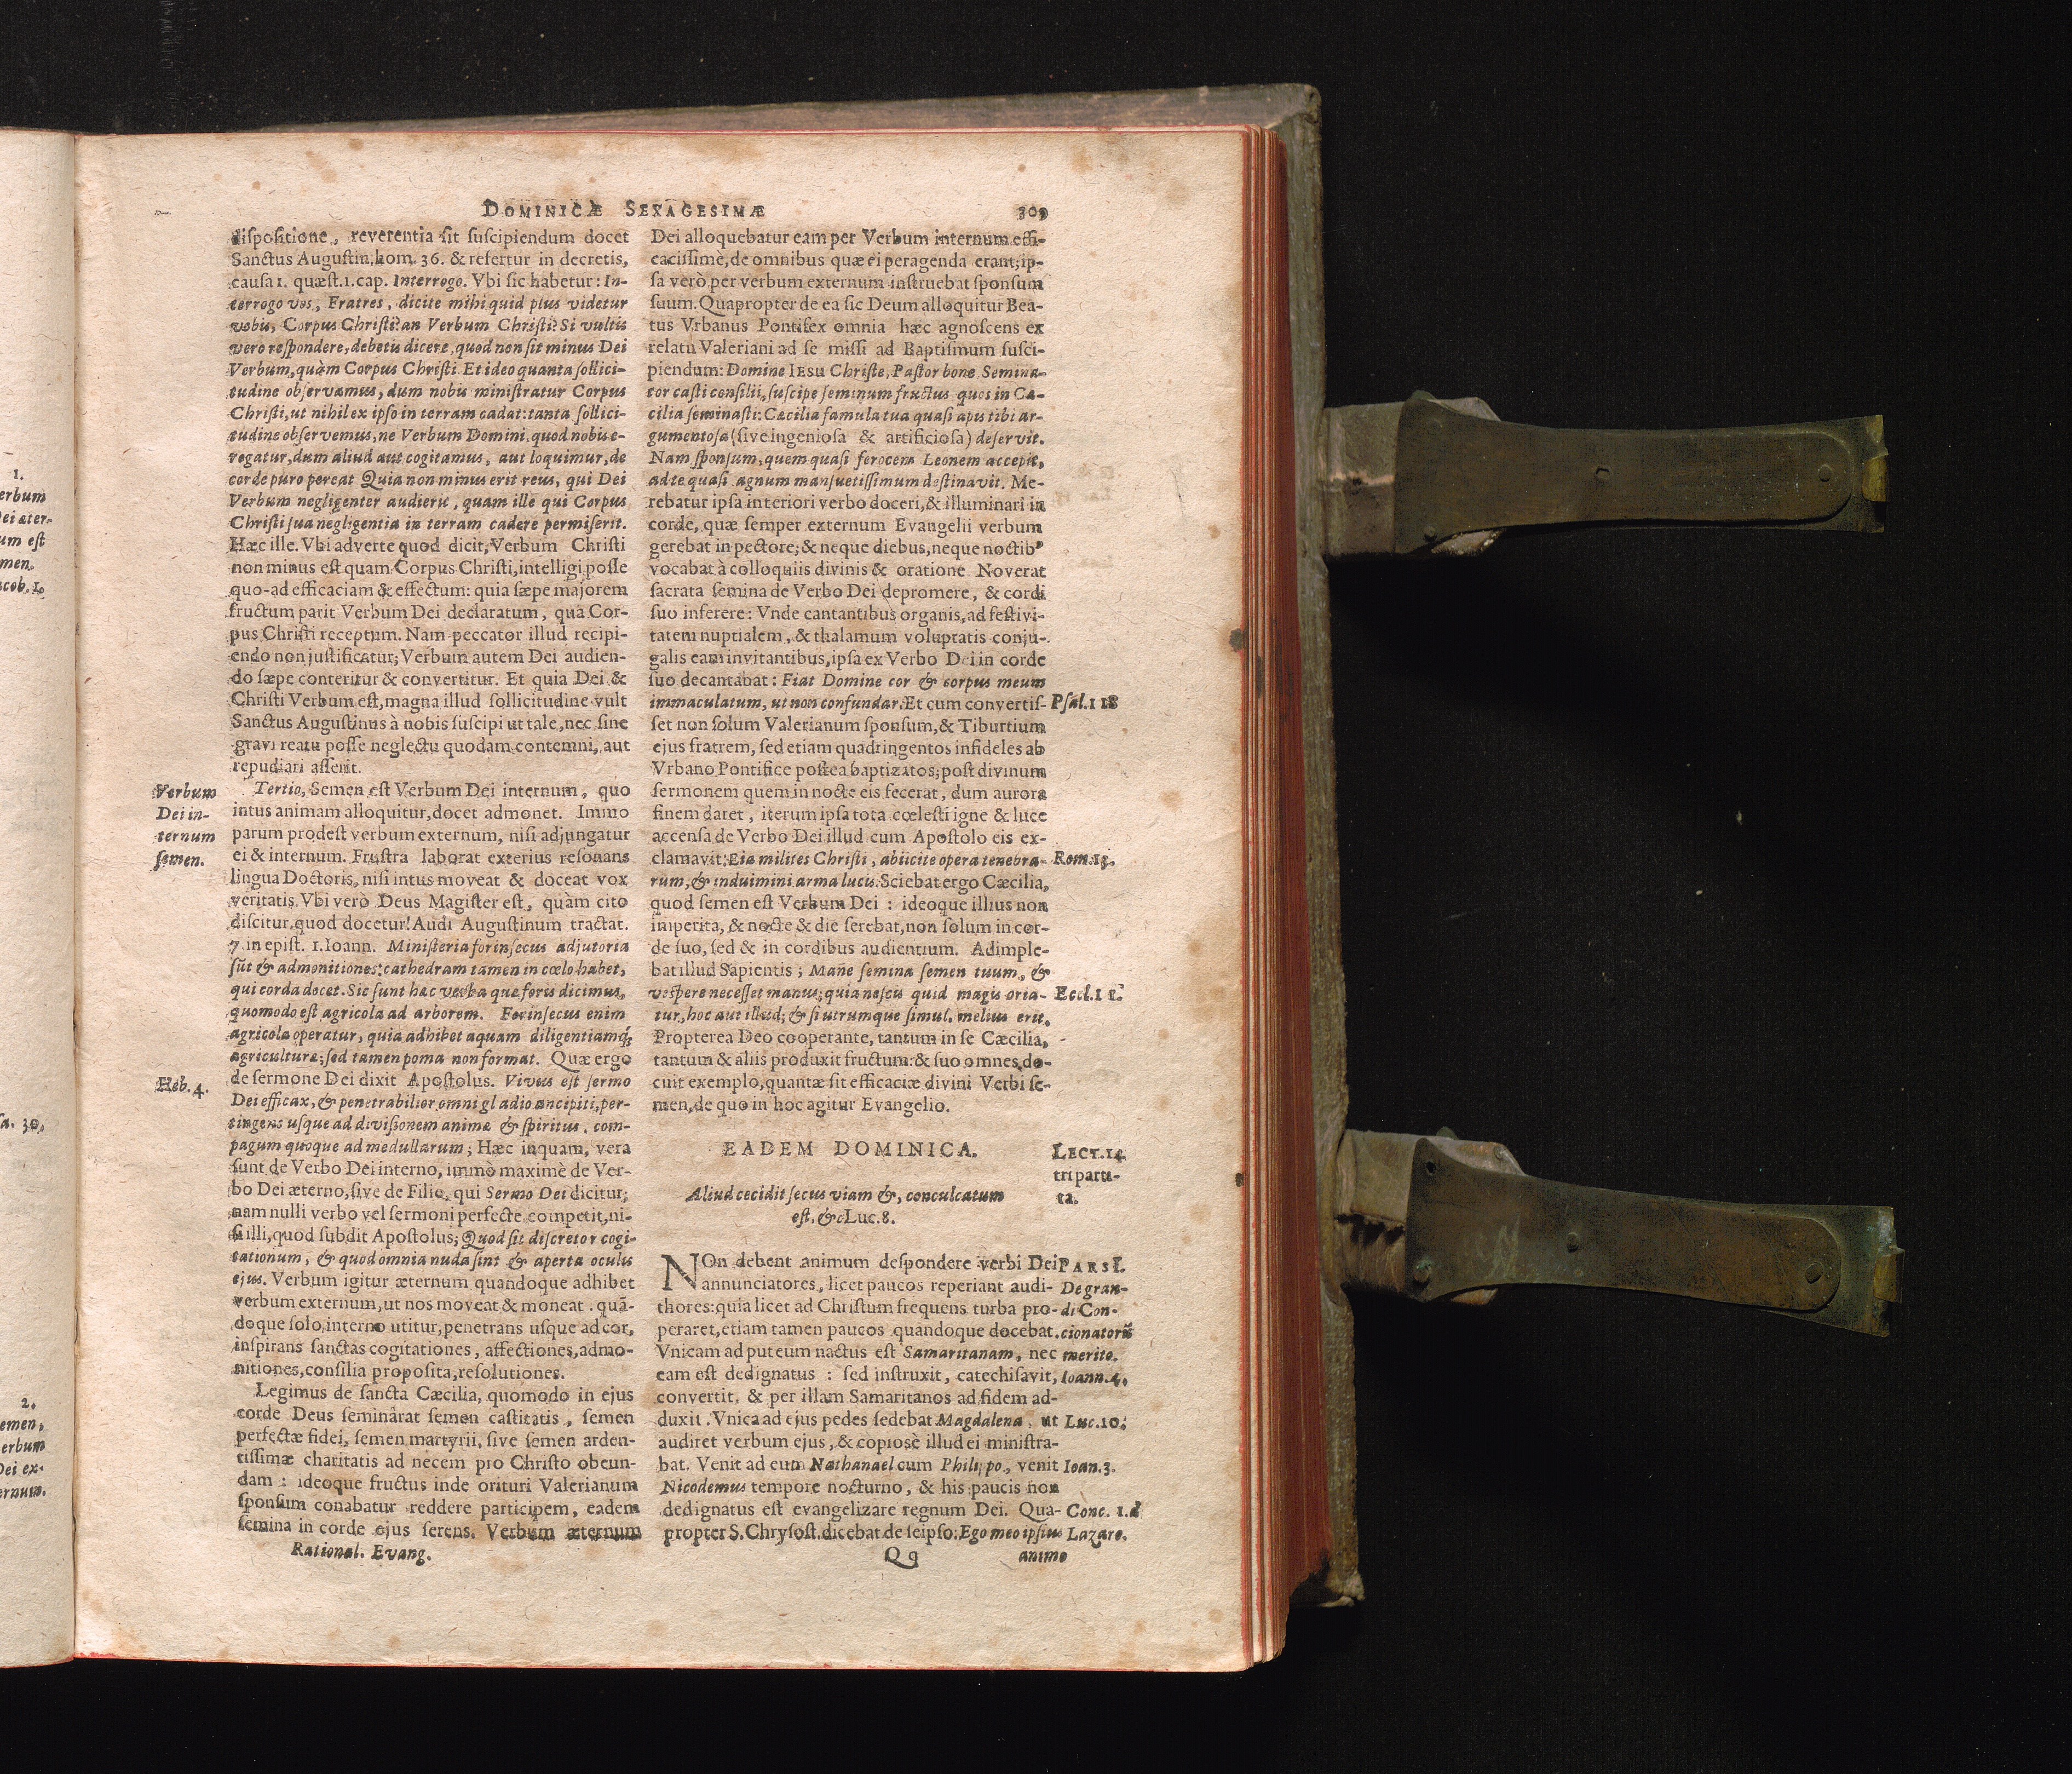 DOMINICÆ SEXAGESIMÆ 309
dispositione, reverentia sit suscipiendum docet
Sanctus Augustin. hom. 36. & refertur in decretis,
causa 1. quæst. 1. cap. Interrogo. Vbi sic habetur: In-
terrogo vos, Fratres, dicite mihi quid plus videtur
vobis, Corpus Christi? an Verbum Christi? Si vultis
vero respondere, debetis dicere, quod non sit minus Dei
Verbum, quàm Corpus Christi. Et ideo quanta sollici-
tudine observamus, dum nobis ministratur Corpus
Christi, ut nihil ex ipso in terram cadat: tanta sollici-
tudine observemus, ne Verbum Domini, quod nobis e-
rogatur, dum aliud aut cogitamus, aut loquimur, de
corde puro pereat Quia non minus erit reus, qui Dei
Verbum negligenter audierit, quam ille qui Corpus
Christi sua negligentia in terram cadere permiserit.
Hæc ille. Vbi adverte quod dicit, Verbum Christi
non minus est quam Corpus Christi, intelligi posse
quo-ad efficaciam & effectum: quia sæpe majorem
fructum parit Verbum Dei declaratum, quā Cor-
pus Christi receptum. Nam peccator illud recipi-
endo non justificatur; Verbum autem Dei audien-
do sæpe conteritur & convertitur. Et quia Dei &
Christi Verbum est, magna illud sollicitudine vult
Sanctus Augustinus à nobis suscipi ut tale, nec sine
gravi reatu posse neglectu quodam contemni, aut
repudiari asserit.
Verbum
Dei in-
ternum
semen.
Tertio, Semen est Verbum Dei internum, quo
intus animam alloquitur, docet admonet. Immo
parum prodest verbum externum, nisi adjungatur
ei & internum. Frustra laborat exterius resonans
lingua Doctoris, nisi intus moveat & doceat vox
veritatis. Vbi verò Deus Magister est, quàm cito
discitur, quod docetur! Audi Augustinum tractat.
7 in epist. 1. Ioann. Ministeria forinsecus adjutoria
sūt & admonitiones: cathedram tamen in cœlo habet,
qui corda docet. Sic sunt hæc verba quæ foris dicimus,
quomodo est agricola ad arborem. Forinsecus enim
agricola operatur, quia adhibet aquam diligentiamq́;
agriculturæ; sed tamen poma non format. Quæ ergo
Heb. 4.
de sermone Dei dixit Apostolus. Vivus est sermo
Dei efficax, & penetrabilior omni gladio ancipiti, per-
tingens usque ad divisionem animæ & spiritus, com-
pagum quoque ad medullarum; Hæc inquam, vera
sunt de Verbo Dei interno, immò maximè de Ver-
bo Dei æterno, sive de Filio, qui Sermo Dei dicitur;
nam nulli verbo vel sermoni perfecte competit, ni-
si illi, quod subdit Apostolus; Quod sit discretor cogi-
tationum, & quod omnia nuda sint & aperta oculis
ejus. Verbum igitur æternum quandoque adhibet
verbum externum, ut nos moveat & moneat. quā-
doque solo, interno utitur, penetrans usque ad cor,
inspirans sanctas cogitationes, affectiones, admo-
nitiones, consilia proposita, resolutiones.
Legimus de sancta Cæcilia, quomodo in ejus
corde Deus seminârat semen castitatis, semen
perfectæ fidei, semen martyrii, sive semen arden-
tissimæ charitatis ad necem pro Christo obeun-
dam: ideoque fructus inde orituri Valerianum
sponsum conabatur reddere participem, eadem
semina in corde ejus serens. Verbum æternum
Rational. Evang.
Dei alloquebatur eam per Verbum internum effi-
cacissimè, de omnibus quæ ei peragenda erant; ip-
sa verò per verbum externum instruebat sponsum
suum. Quapropter de ea sic Deum alloquitur Bea-
tus Vrbanus Pontifex omnia hæc agnoscens ex
relatu Valeriani ad se missi ad Baptismum susci-
piendum: Domine IESU Christe, Pastor bone, Semina-
tor casti consilii, suscipe seminum fructus quos in Cæ-
cilia seminasti: Cæcilia famula tua quasi apis tibi ar-
gumentosa (sive ingeniosa & artificiosa) deservit.
Nam sponsum, quem quasi ferocem Leonem accepit,
ad te quasi agnum mansuetissimum destinavit. Me-
rebatur ipsa interiori verbo doceri, & illuminari in
corde, quæ semper externum Evangelii verbum
gerebat in pectore; & neque diebus, neque noctib9
vocabat à colloquiis divinis & oratione Noverat
sacrata semina de Verbo Dei depromere, & cordi
suo inferere: Vnde cantantibus organis, ad festivi-
tatem nuptialem, & thalamum voluptatis conju-
galis eam invitantibus, ipsa ex Verbo Dei in corde
suo decantabat: Fiat Domine cor & corpus meum
immaculatum, ut non confundar. Et cum convertis- Psal. 118
set non solum Valerianum sponsum, & Tiburtium
ejus fratrem, sed etiam quadringentos infideles ab
Vrbano Pontifice postea baptizatos; post divinum
sermonem quem in nocte eis fecerat, dum aurora
finem daret, iterum ipsa tota cœlesti igne & luce
accensa de Verbo Dei illud cum Apostolo eis ex-
clamavit: Eia milites Christi, abiicite opera tenebra- Rom. 13.
rum, & induimini arma lucis. Sciebat ergo Cæcilia,
quod semen est Verbum Dei: ideoque illius non
imperita, & nocte & die serebat, non solum in cor-
de suo, sed & in cordibus audientium. Adimple-
bat illud Sapientis; Mane semina semen tuum, &
vespere ne cesset manus; quia nescis quid magis oria- Eccl. 11.
tur, hoc aut illud; & si utrumque simul, melius erit.
Propterea Deo cooperante, tantum in se Cæcilia,
tantum & aliis produxit fructum: & suo omnes do-
cuit exemplo, quantæ sit efficaciæ divini Verbi se-
men, de quo in hoc agitur Evangelio.
EADEM DOMINICA.
LECT. 14.
triparti-
ta.
Aliud cecidit secus viam &, conculcatum
est. &c Luc. 8.
NOn debent animum despondere verbi Dei PARS I.
annunciatores, licet paucos reperiant audi- De gran-
thores: quia licet ad Christum frequens turba pro- di Con-
peraret, etiam tamen paucos quandoque docebat. cionatorū
Vnicam ad puteum nactus est Samaritanam, nec merito.
eam est dedignatus: sed instruxit, catechisavit, Ioann. 4.
convertit, & per illam Samaritanos ad fidem ad-
duxit. Vnica ad ejus pedes sedebat Magdalena, ut Luc. 10.
audiret verbum ejus, & copiosè illud ei ministra-
bat. Venit ad eum Nathanael cum Philippo, venit Ioan. 3.
Nicodemus tempore nocturno, & his paucis non
dedignatus est evangelizare regnum Dei. Qua- Conc. 1. d
propter S. Chrysost. dicebat de seipso: Ego meo ipsius Lazaro.
Qq animo